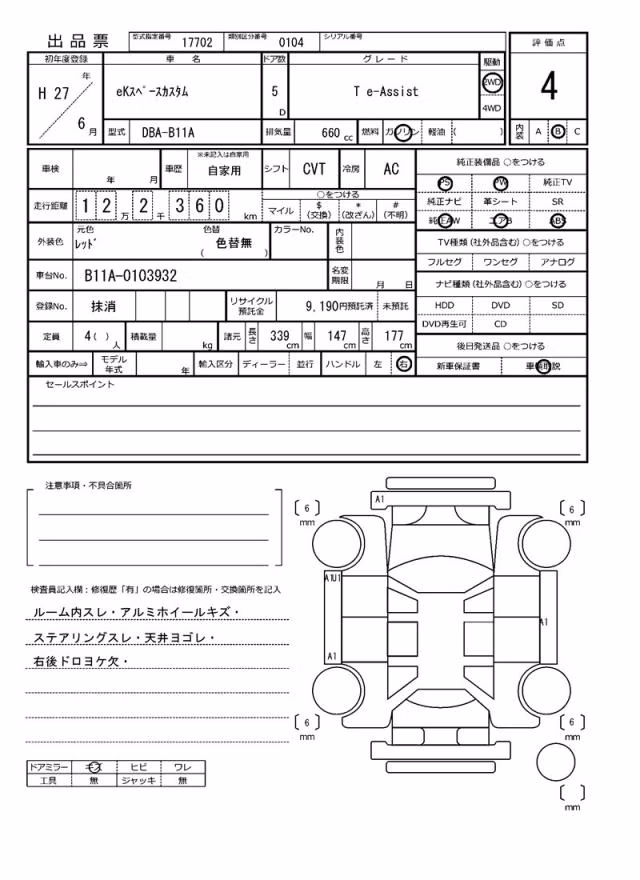 出品票
型式指定番号 17702 類別区分番号 0104 シリアル番号
初年度登録 車 名 ドア数 グレード 駆動 評価点
H 27 年 6 月
eKスペースカスタム
5 D
T e-Assist
2WD
4WD
4
型式 DBA-B11A 排気量 660 cc 燃料 ガソリン 軽油 ( ) 内装 A B C
車検 年 月 車歴 ※未記入は自家用 自家用 シフト CVT 冷房 AC
走行距離 1 2 万 2 千 3 6 0 km
○をつける
マイル $(交換) *(改ざん) #(不明)
外装色 元色 レッド 色替 ( 色替無 ) カラーNo. 内装色
車台No. B11A-0103932 名変期限 月 日
登録No. 抹消 リサイクル預託金 9,190円預託済 未預託
定員 4( ) 人 積載量 kg 諸元 長さ 339 cm 幅 147 cm 高さ 177 cm
輸入車のみ⇒ モデル年式 年 輸入区分 ディーラー 並行 ハンドル 左 右
純正装備品 ○をつける
PS PW 純正TV
純正ナビ 革シート SR
純正AW エアB ABS
TV種類 (社外品含む) ○をつける
フルセグ ワンセグ アナログ
ナビ種類 (社外品含む) ○をつける
HDD DVD SD
DVD再生可 CD
後日発送品 ○をつける
新車保証書 車輌取説
セールスポイント
注意事項・不具合箇所
検査員記入欄：修復歴「有」の場合は修復箇所・交換箇所を記入
ルーム内スレ・アルミホイールキズ・
ステアリングスレ・天井ヨゴレ・
右後ドロヨケ欠・
ドアミラー キズ ヒビ ワレ
工具 無 ジャッキ 無
A1
6 mm
6 mm
A1U1
A1
A1
6 mm
6 mm
mm